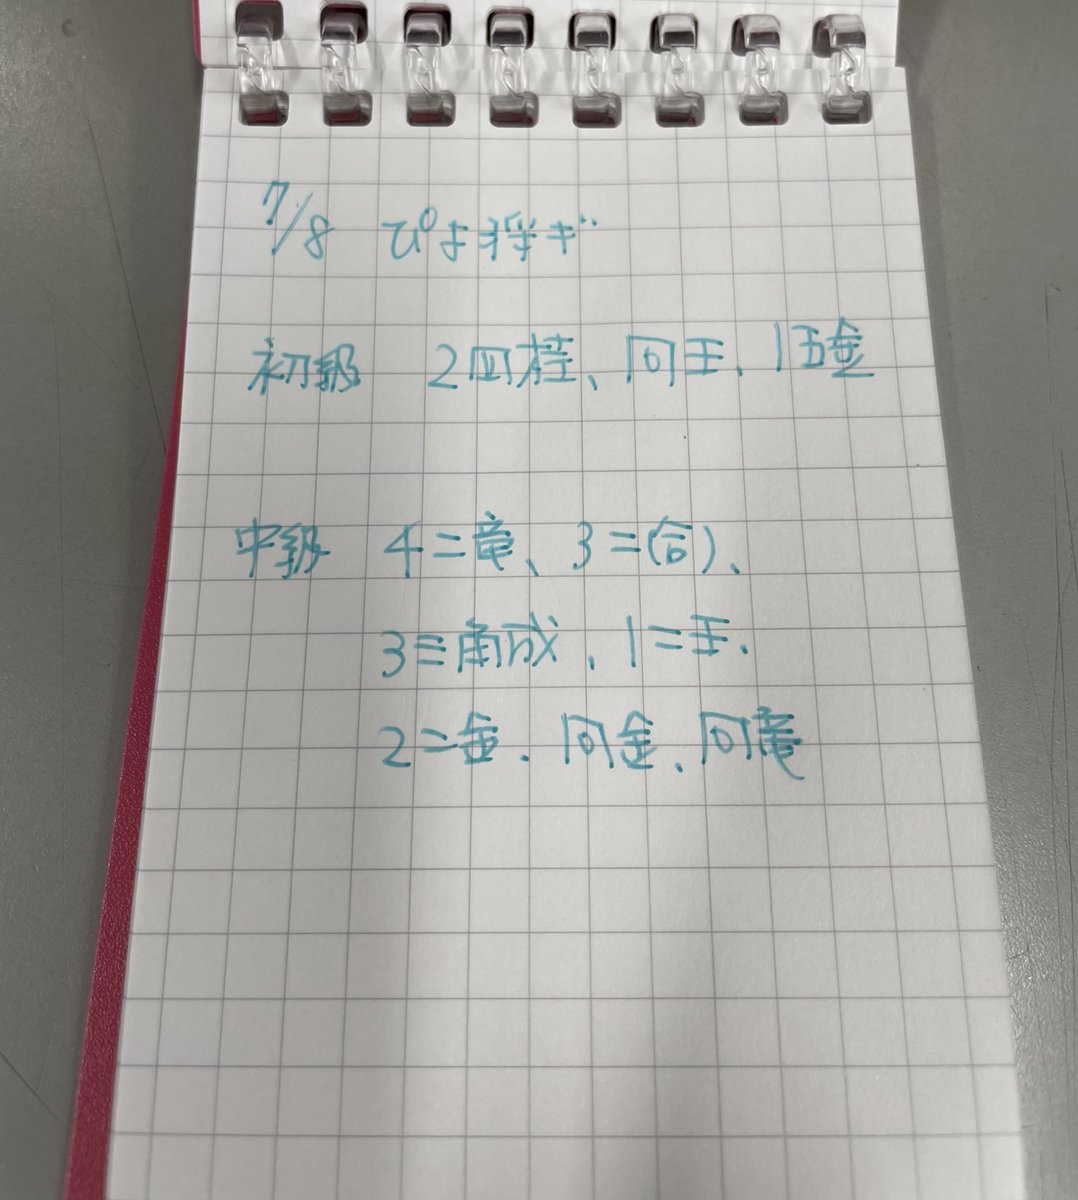 7/8 ぴよ将ギ
初級 2四桂、同玉、1五金
中級 4二竜、3二(合)、
3三角成、1二玉、
2二金、同金、同竜